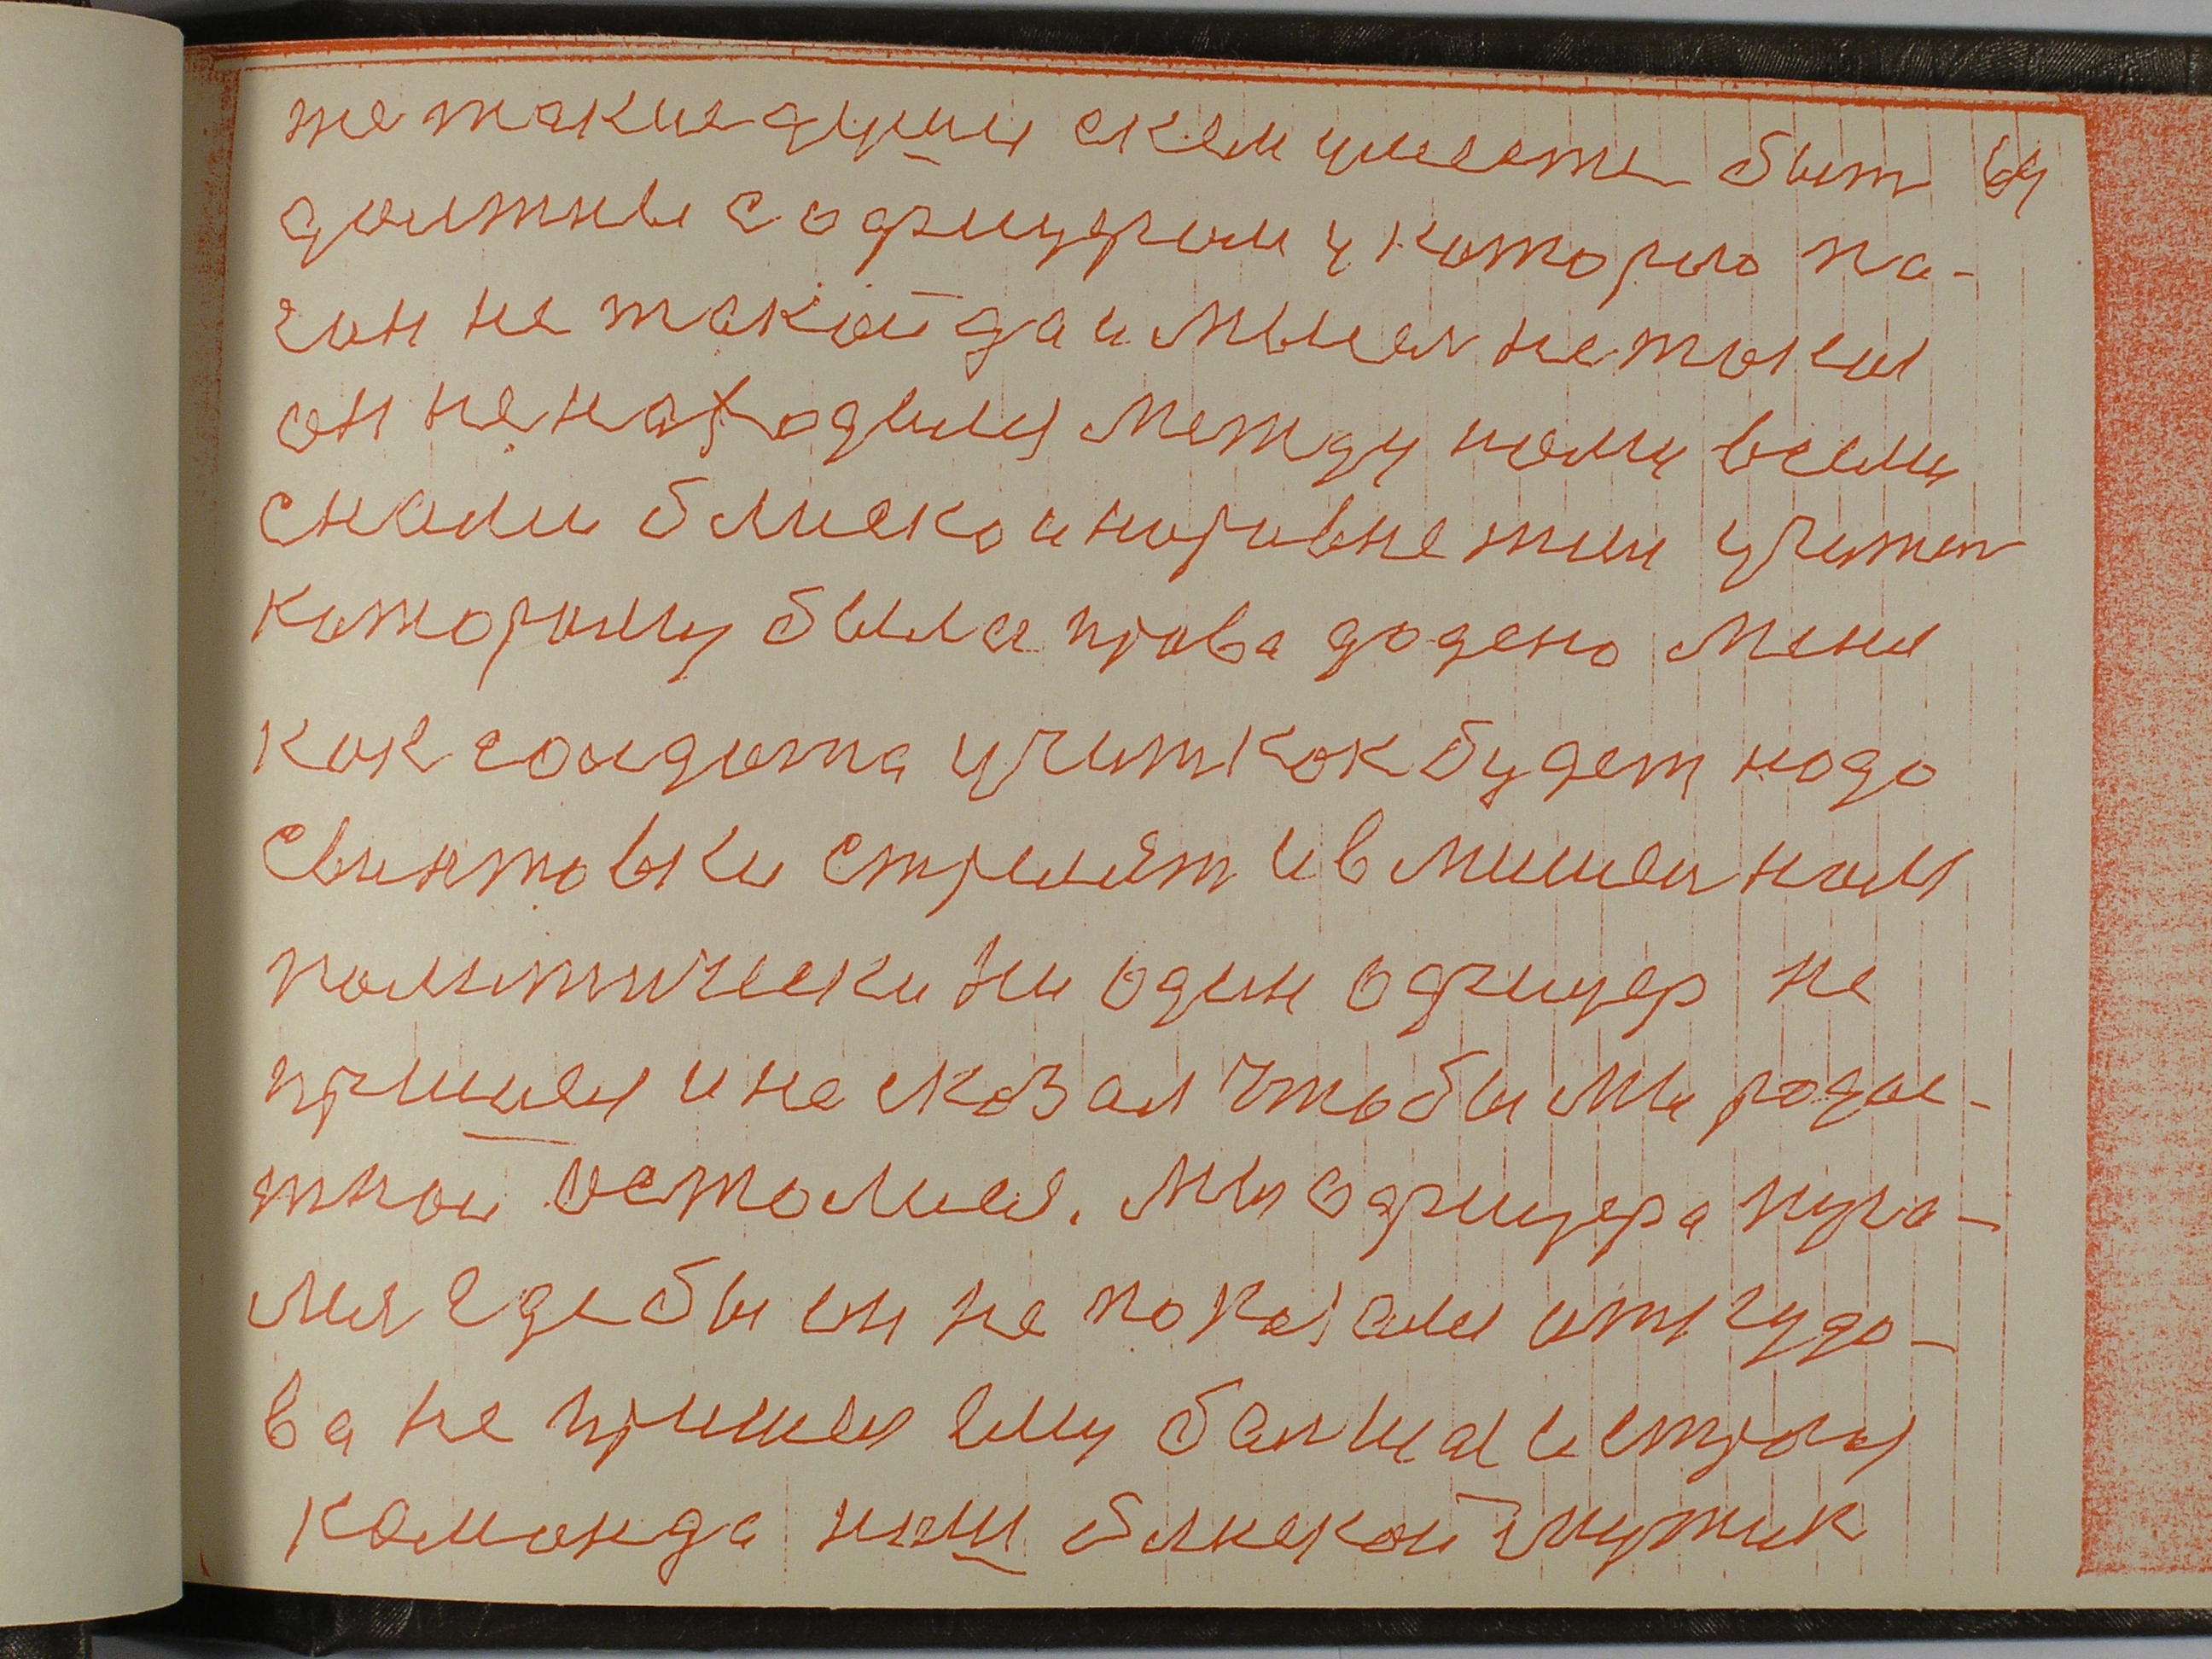 же такие души скем умеете быт 64
должны с офицером у которого по-
гон не такой да и мысл не така
он не находился между нами всеми
снами блиско и наравне жил учител
которому была права додено меня
как солдата учит как будет надо
свинтовки стрелят и в мишен нам
политически ни один офицер не
пришел и не сказал чтобы мы родзе-
тной осталися. мы офицера пуга-
лися где бы он не показался от куда-
ва не пришел ему балшая и строгая
команда наш блиской мужик